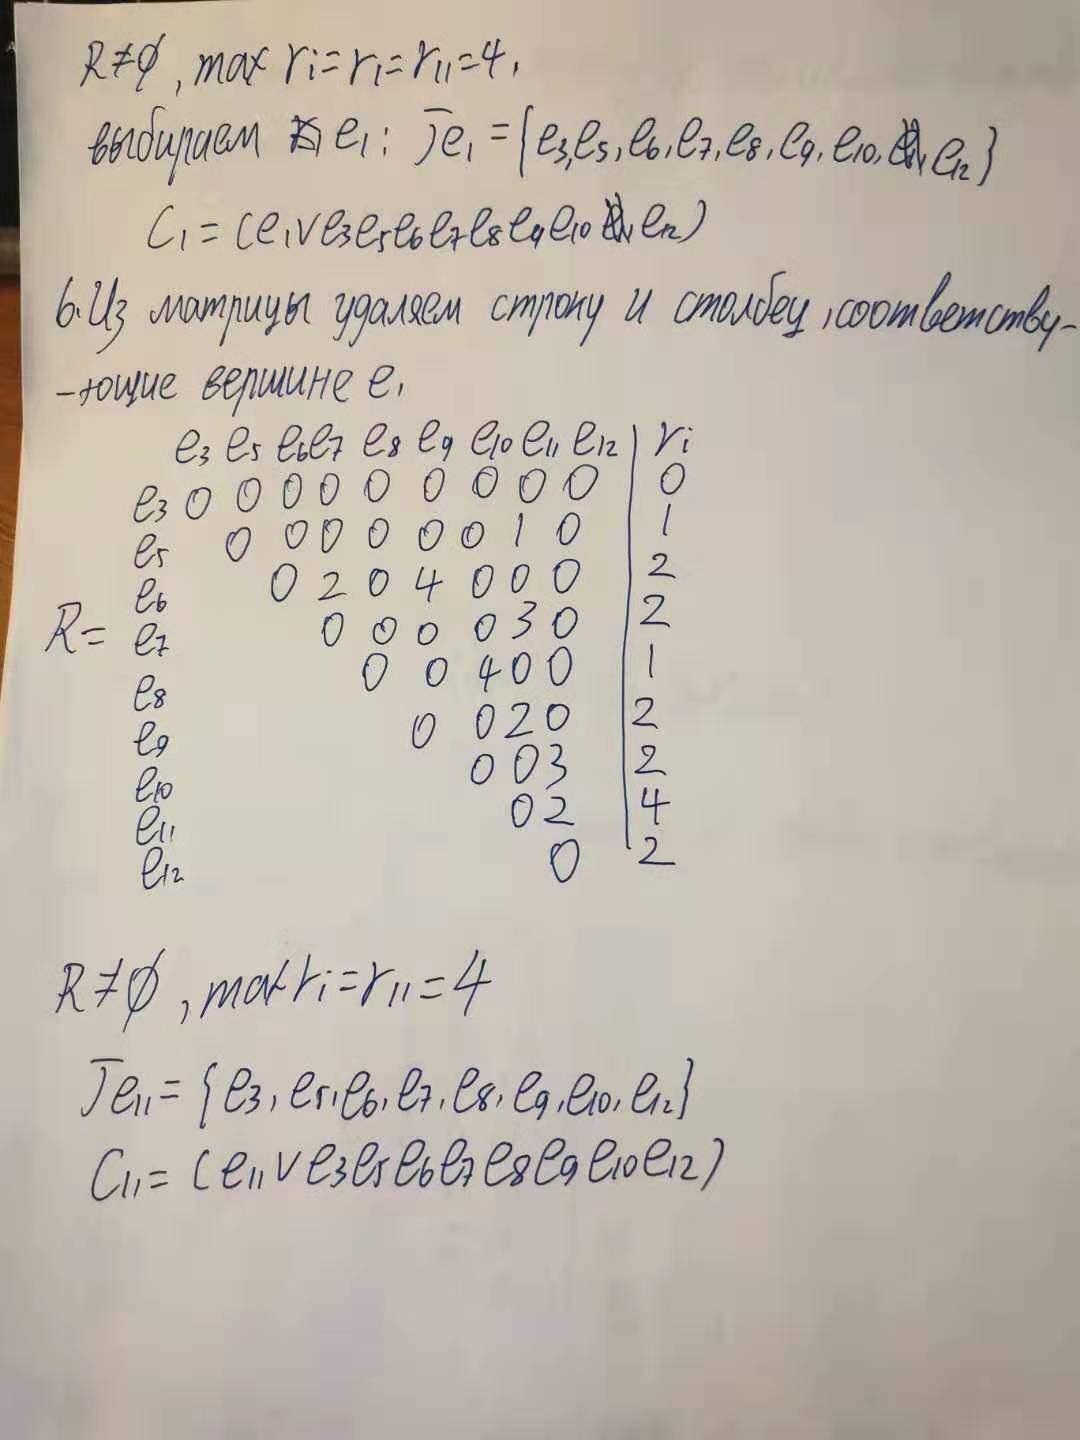 R≠∅, max ri=r1=r11=4,
выбираем e1: Γe1={e3,e5,e6,e7,e8,e9,e10, e12}
C1=(e1∨e3e5e6e7e8e9e10 e12)
6.Из матрицы удаляем строку и столбец,соответству-
-ющие вершине e1
e3 e5 e6 e7 e8 e9 e10 e11 e12 | ri
e3 0 0 0 0 0 0 0 0 0 | 0
e5 0 0 0 0 0 0 1 0 | 1
e6 0 2 0 4 0 0 0 | 2
R= e7 0 0 0 0 3 0 | 2
e8 0 0 4 0 0 | 1
e9 0 0 2 0 | 2
e10 0 0 3 | 2
e11 0 2 | 4
e12 0 | 2
R≠∅, max ri=r11=4
Γe11={e3,e5,e6,e7,e8,e9,e10,e12}
C11=(e11∨e3e5e6e7e8e9e10e12)